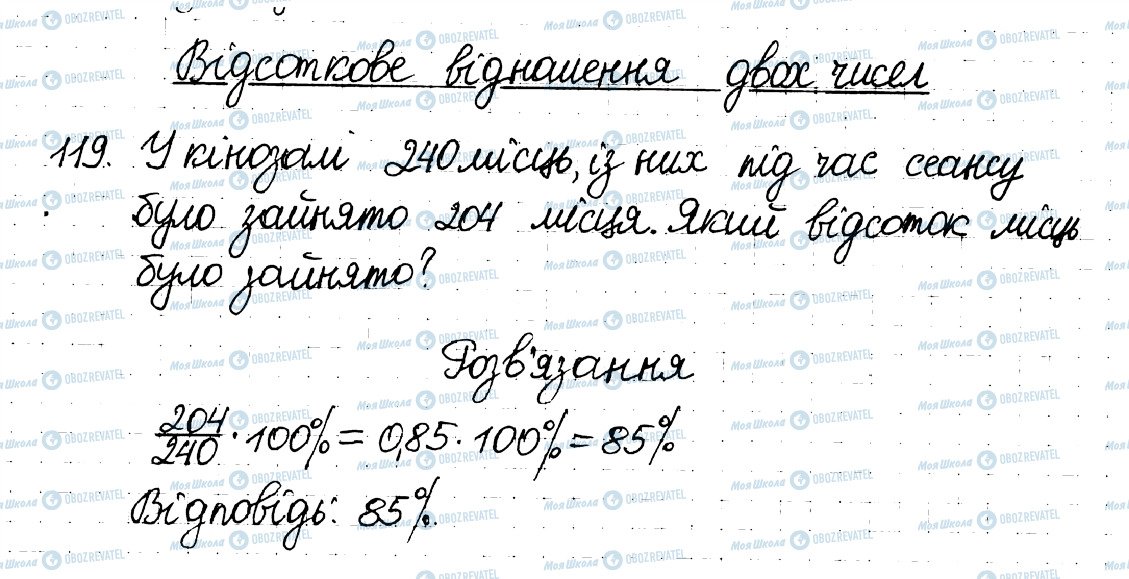 Відсоткове відношення двох чисел
119. У кінозалі 240 місць, із них під час сеансу
було зайнято 204 місця. Який відсоток місць
було зайнято?
Розв'язання
204/240 · 100% = 0,85 · 100% = 85%
Відповідь: 85%.